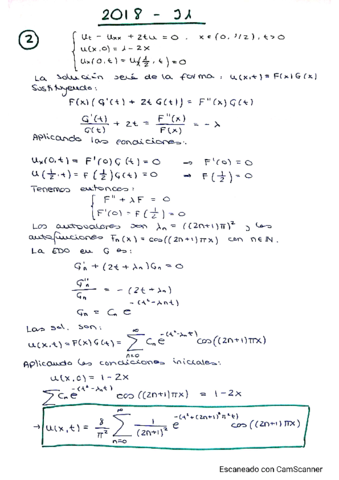 2018 - J1
2
u_t - u_xx + 2tu = 0, x ∈ (0, 1/2), t > 0
u(x,0) = 1 - 2x
u_x(0,t) = u(1/2, t) = 0
La solución será de la forma: u(x,t) = F(x)G(t)
Sustituyendo:
F(x)(G'(t) + 2t G(t)) = F''(x) G(t)
G'(t)/G(t) + 2t = F''(x)/F(x) = -λ
Aplicando las condiciones:
u_x(0,t) = F'(0) G(t) = 0 → F'(0) = 0
u(1/2, t) = F(1/2) G(t) = 0 → F(1/2) = 0
Tenemos entonces:
F'' + λF = 0
F'(0) - F(1/2) = 0
Los autovalores son λn = ((2n+1)π)², y las
autofunciones Fn(x) = cos((2n+1)πx) con n∈N.
La EDO en G es:
G'n + (2t + λn)Gn = 0
G'n/Gn = -(2t + λn)
Gn = Cn e^-(t²-λnt)
Las sol. son:
u(x,t) = F(x)G(t) = ∑_{n=0}^∞ Cn e^-(t²-λnt) cos((2n+1)πx)
Aplicando las condiciones iniciales:
u(x,0) = 1 - 2x
∑ Cn e^-(t²-λnt) cos((2n+1)πx) = 1 - 2x
→ u(x,t) = 8/π² ∑_{n=0}^∞ 1/(2n+1)² e^-(t²+(2n+1)²π²t) cos((2n+1)πx)
Escaneado con CamScanner